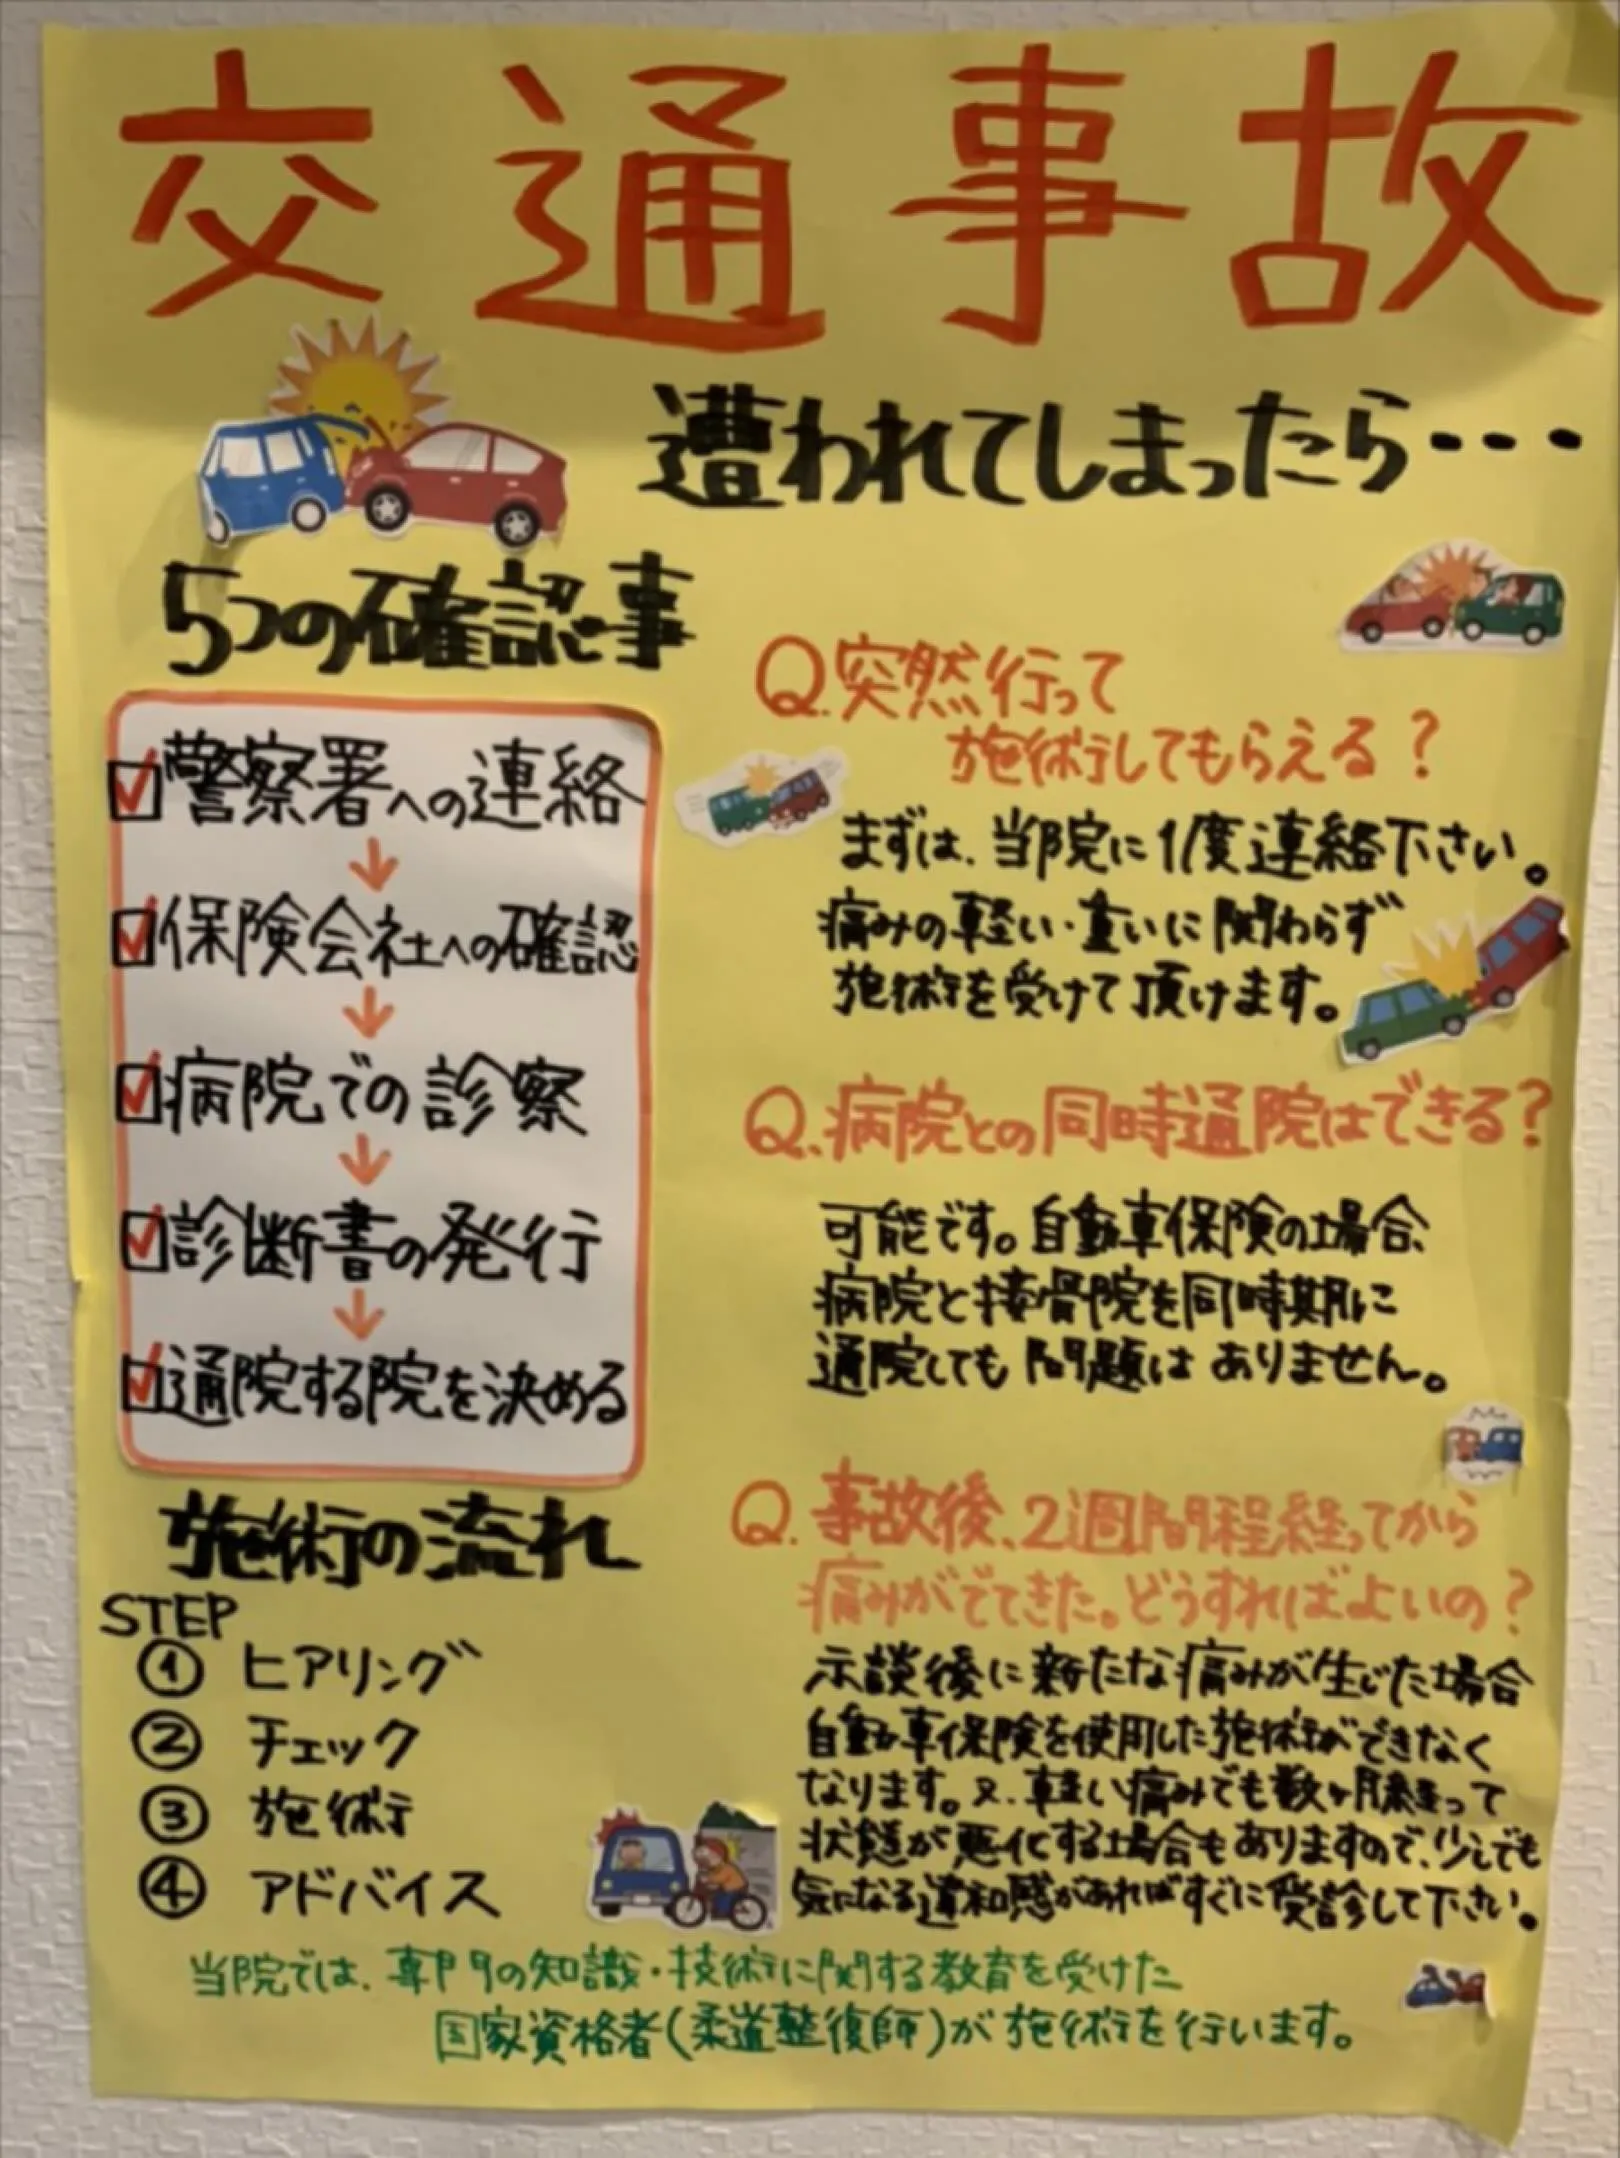 交通事故
遭われてしまったら・・・
5つの確認事
警察署への連絡
保険会社への確認
病院での診察
診断書の発行
通院する院を決める
施術の流れ
STEP
① ヒアリング
② チェック
③ 施術
④ アドバイス
Q.突然行って
施術してもらえる?
まずは、当院に1度連絡下さい。
痛みの軽い・重いに関わらず
施術を受けて頂けます。
Q.病院との同時通院はできる?
可能です。自動車保険の場合、
病院と接骨院を同時期に
通院しても問題はありません。
Q.事故後、2週間程経ってから
痛みがでてきた。どうすればよいの?
示談後に新たな痛みが生じた場合
自動車保険を使用した施術ができなく
なります。又、軽い痛みでも数ヶ月経って
状態が悪化する場合もありますので、少しでも
気になる違和感があればすぐに受診して下さい。
当院では、専門の知識・技術に関する教育を受けた
国家資格者(柔道整復師)が施術を行います。